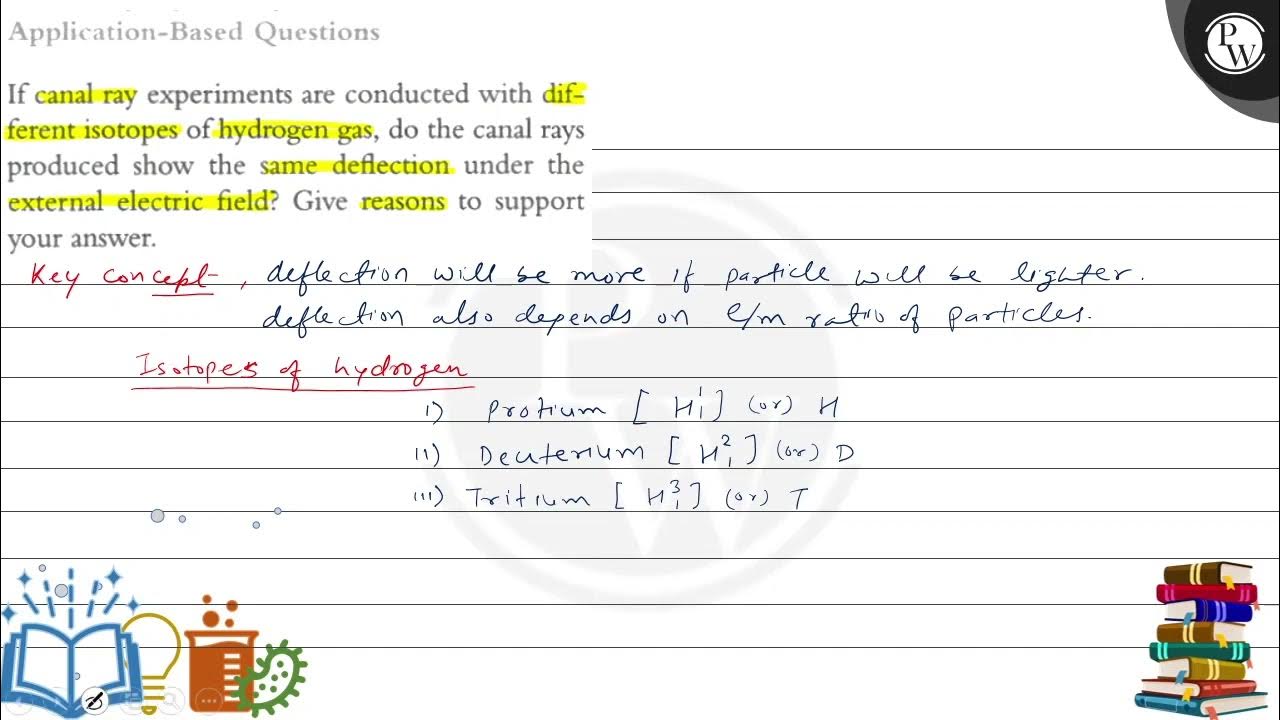 Application-Based Questions
If canal ray experiments are conducted with dif-
ferent isotopes of hydrogen gas, do the canal rays
produced show the same deflection under the
external electric field? Give reasons to support
your answer.
Key concept, deflection will be more if particle will be lighter.
deflection also depends on e/m ratio of particles.
Isotopes of hydrogen
i) Protium [ H¹₁ ] (or) H
ii) Deuterium [ H²₁ ] (or) D
iii) Tritium [ H³₁ ] (or) T
PW
PW